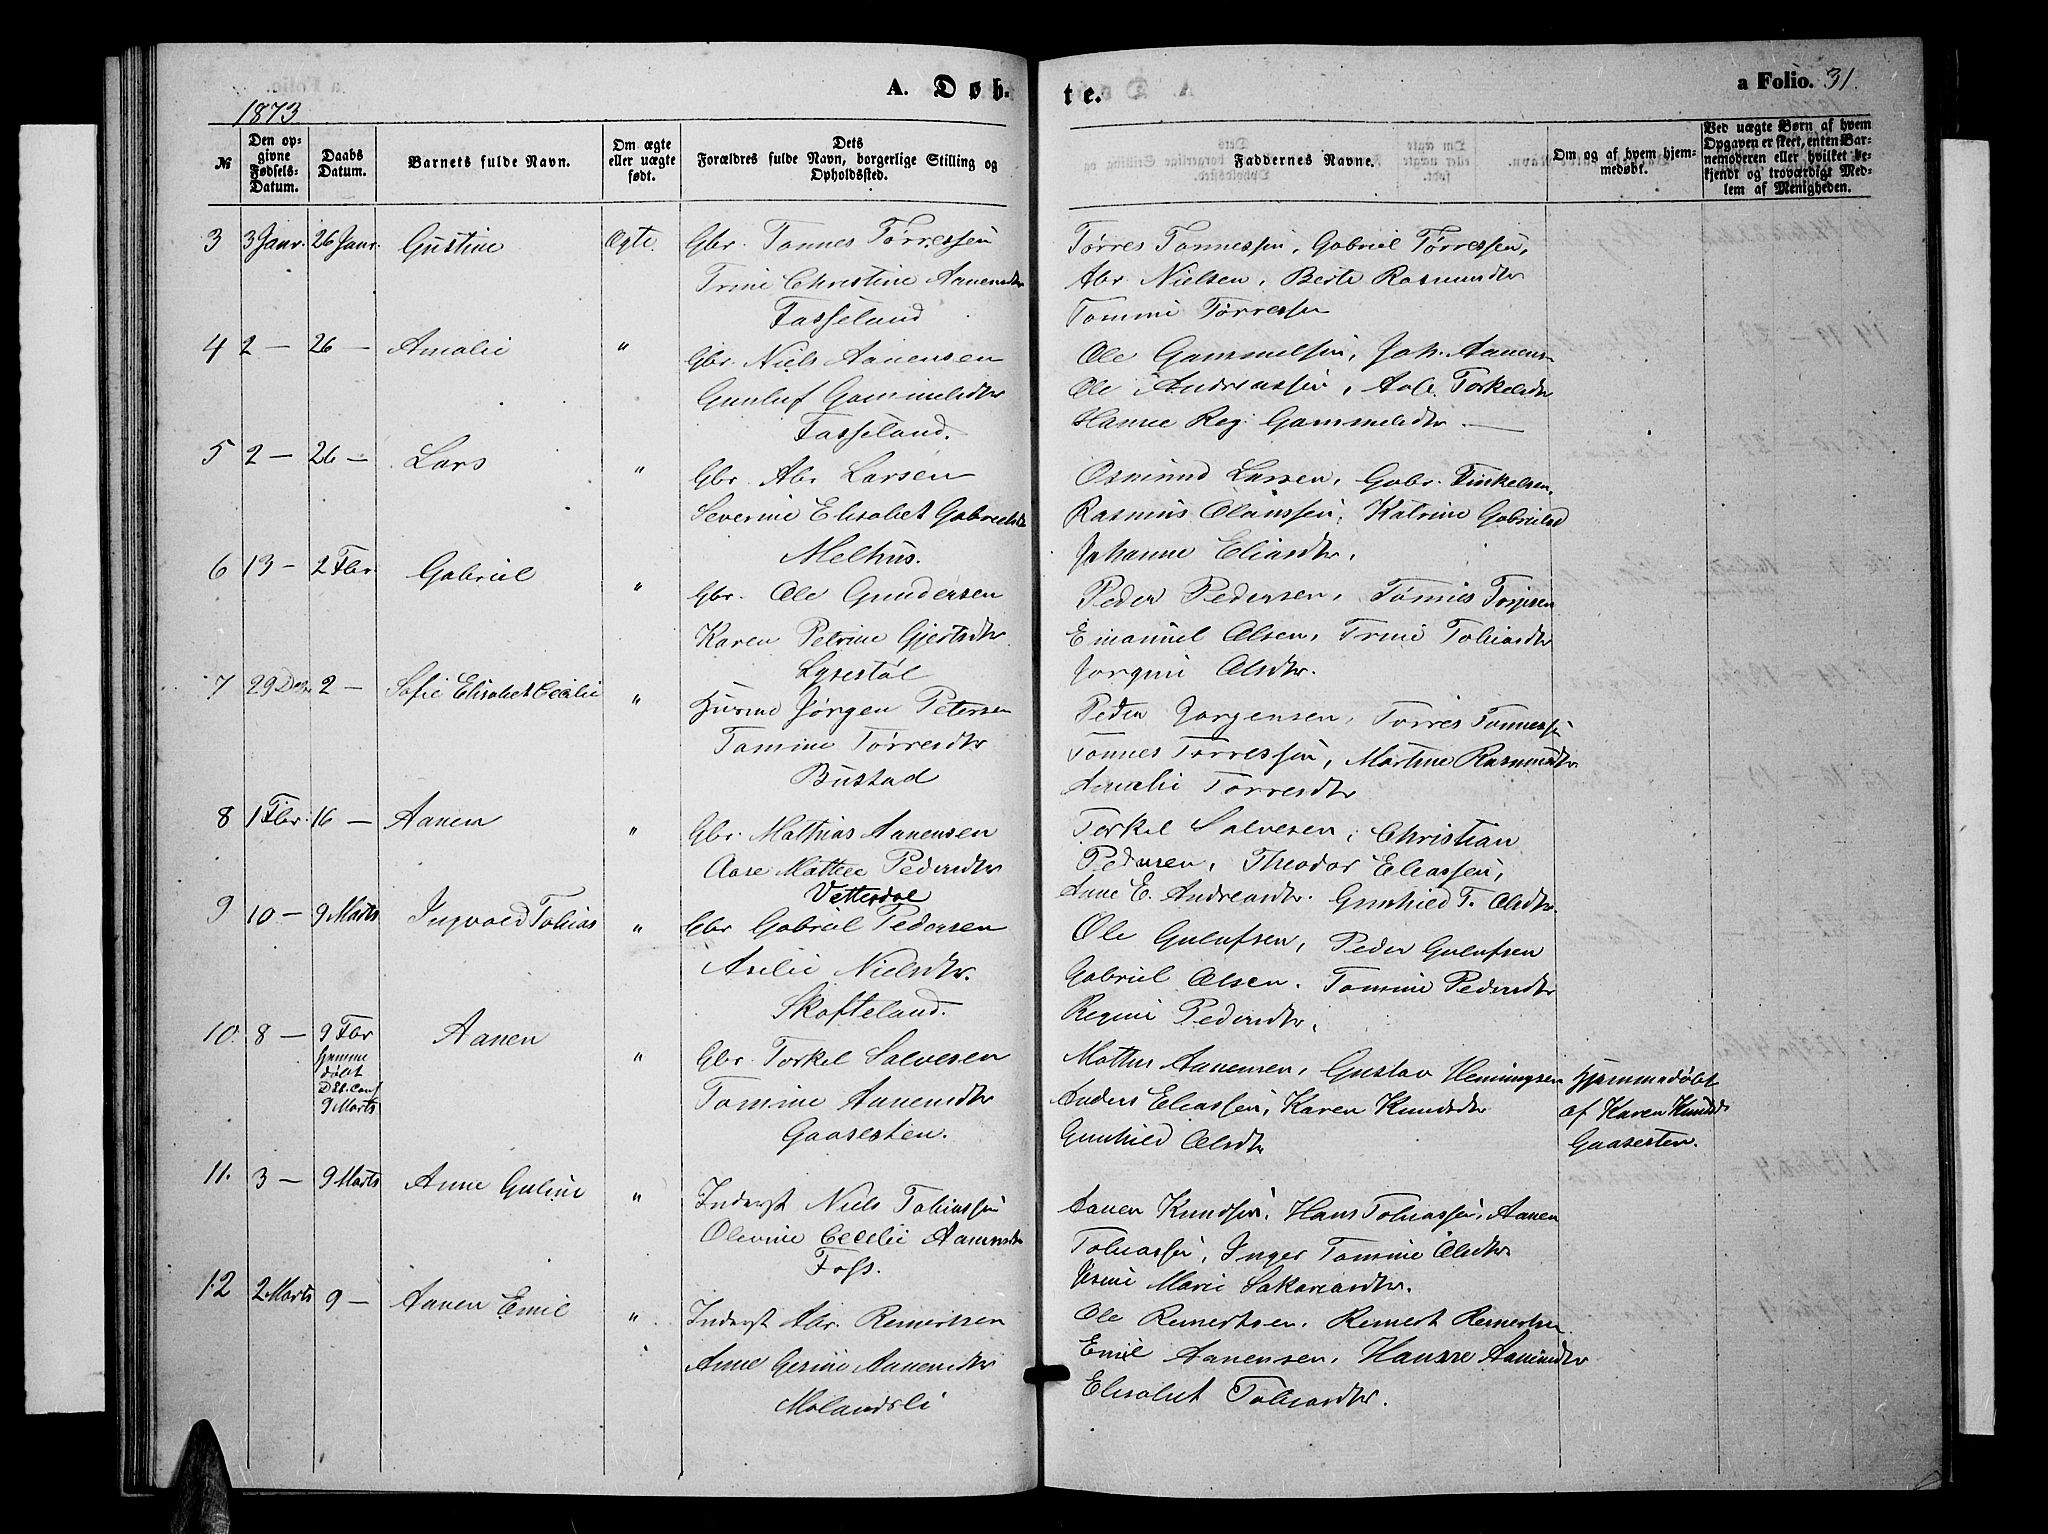 A. Døb-
te.
a Folio. 31.
1873
№
Den op-
givne
Fødsels-
Datum.
Daabs
Datum.
Barnets fulde Navn.
Om ægte
eller uægte
født.
Dets
Forældres fulde Navn, borgerlige Stilling og
Opholdssted.
Faddernes Navne.
Om og af hvem hjem-
medøbt.
Ved uægte Børn af hvem
Opgaven er skeet, enten Bar-
nemoderen eller hvilket be-
kjendt og troværdigt Med-
lem af Menigheden.
3 3 Janr. 26 Janr. Gustine Ægte. Gbr. Tønnes Tørressen
Trine Christine Aanensdtr
Fasseland
Tørres Tønnessen, Gabriel Tørressen,
Abr Nielsen, Berte Rasmusdtr
Tomine Tørressen
4 2 — 26 — Amalie " Gbr. Niels Aanensen
Gunluf Gammelsdtr
Fasseland.
Ole Gammelsen, Joh. Aanens
Ole Andreassen, Aole Torkelsdtr
Hanne Reg. Gammelsdtr —
5 2 — 26 — Lars " Gbr. Abr Larsen
Severine Elisabet Gabrielsdtr
Melhus.
Osmund Larsen, Gabr. Tinkelsen,
Rasmus Olaussen, Katrine Gabrielsd
Johanne Eliasdtr,
6 13 — 2 Fbr Gabriel " Gbr. Ole Gundersen
Karen Petrine Gjertsdtr.
Lysestøl
Peder Pedersen, Tønnes Torjesen
Emanuel Olsen, Trine Tobiasdtr
Jorgine Olsdtr.
7 29 Des. 2 — Sofie Elisabet Cecilie " Husmd Jørgen Petersen
Tomine Tørresdtr
Bustad
Peder Jorgensen, Tørres Tønnessen
Tønnes Tørressen, Martine Rasmusdtr
Amalie Tørresdtr
8 1 Fbr. 16 — Aanen " Gbr. Mathias Aanensen
Aase Mathee Pedersdtr
Vetterdal
Torkel Salvesen, Christian
Pedersen, Theodor Eliassen,
Anne E. Andreasdtr. Gunhild T. Olsdtr.
9 10 — 9 Marts Ingvald Tobias " Gbr Gabriel Pedersen
Axelie Nielsdtr.
Skofteland.
Ole Gulufsen, Peder Gulufsen
Gabriel Olsen. Tomine Pedersdtr
Regine Pedersdtr,
10. 8 — 9 Fbr
hjemme
døbt
Dåb. Conf
9 Marts
Aanen " Gbr. Torkel Salvesen
Tomine Aanensdtr
Gaasesten.
Mathias Aanensen, Gustav Hemingsen
Anders Eliassen, Karen Knudsdtr
Gunhild Olsdtr
Hjemmedøbt
af Karen Knudsdt
Gaasesten.
11. 3 — 9 Marts Anne Guline " Inderst Niels Tobiassen
Olevine Cecelie Aanensdtr
Foss.
Aanen Knudsen, Hans Tobiassen, Aanen
Tobiassen, Inger Tomine Olsdtr
Jesine Marie Sakariasdtr.
12 2 Marts 9 — Aanen Emil " Inderst Abr. Reinertsen
Anne Gesine Aanensdtr
Molandsli
Ole Reinertsen, Reinert Reinertsen
Emil Aanensen, Hanne Aanensdtr
Elisabet Tobiasdtr.